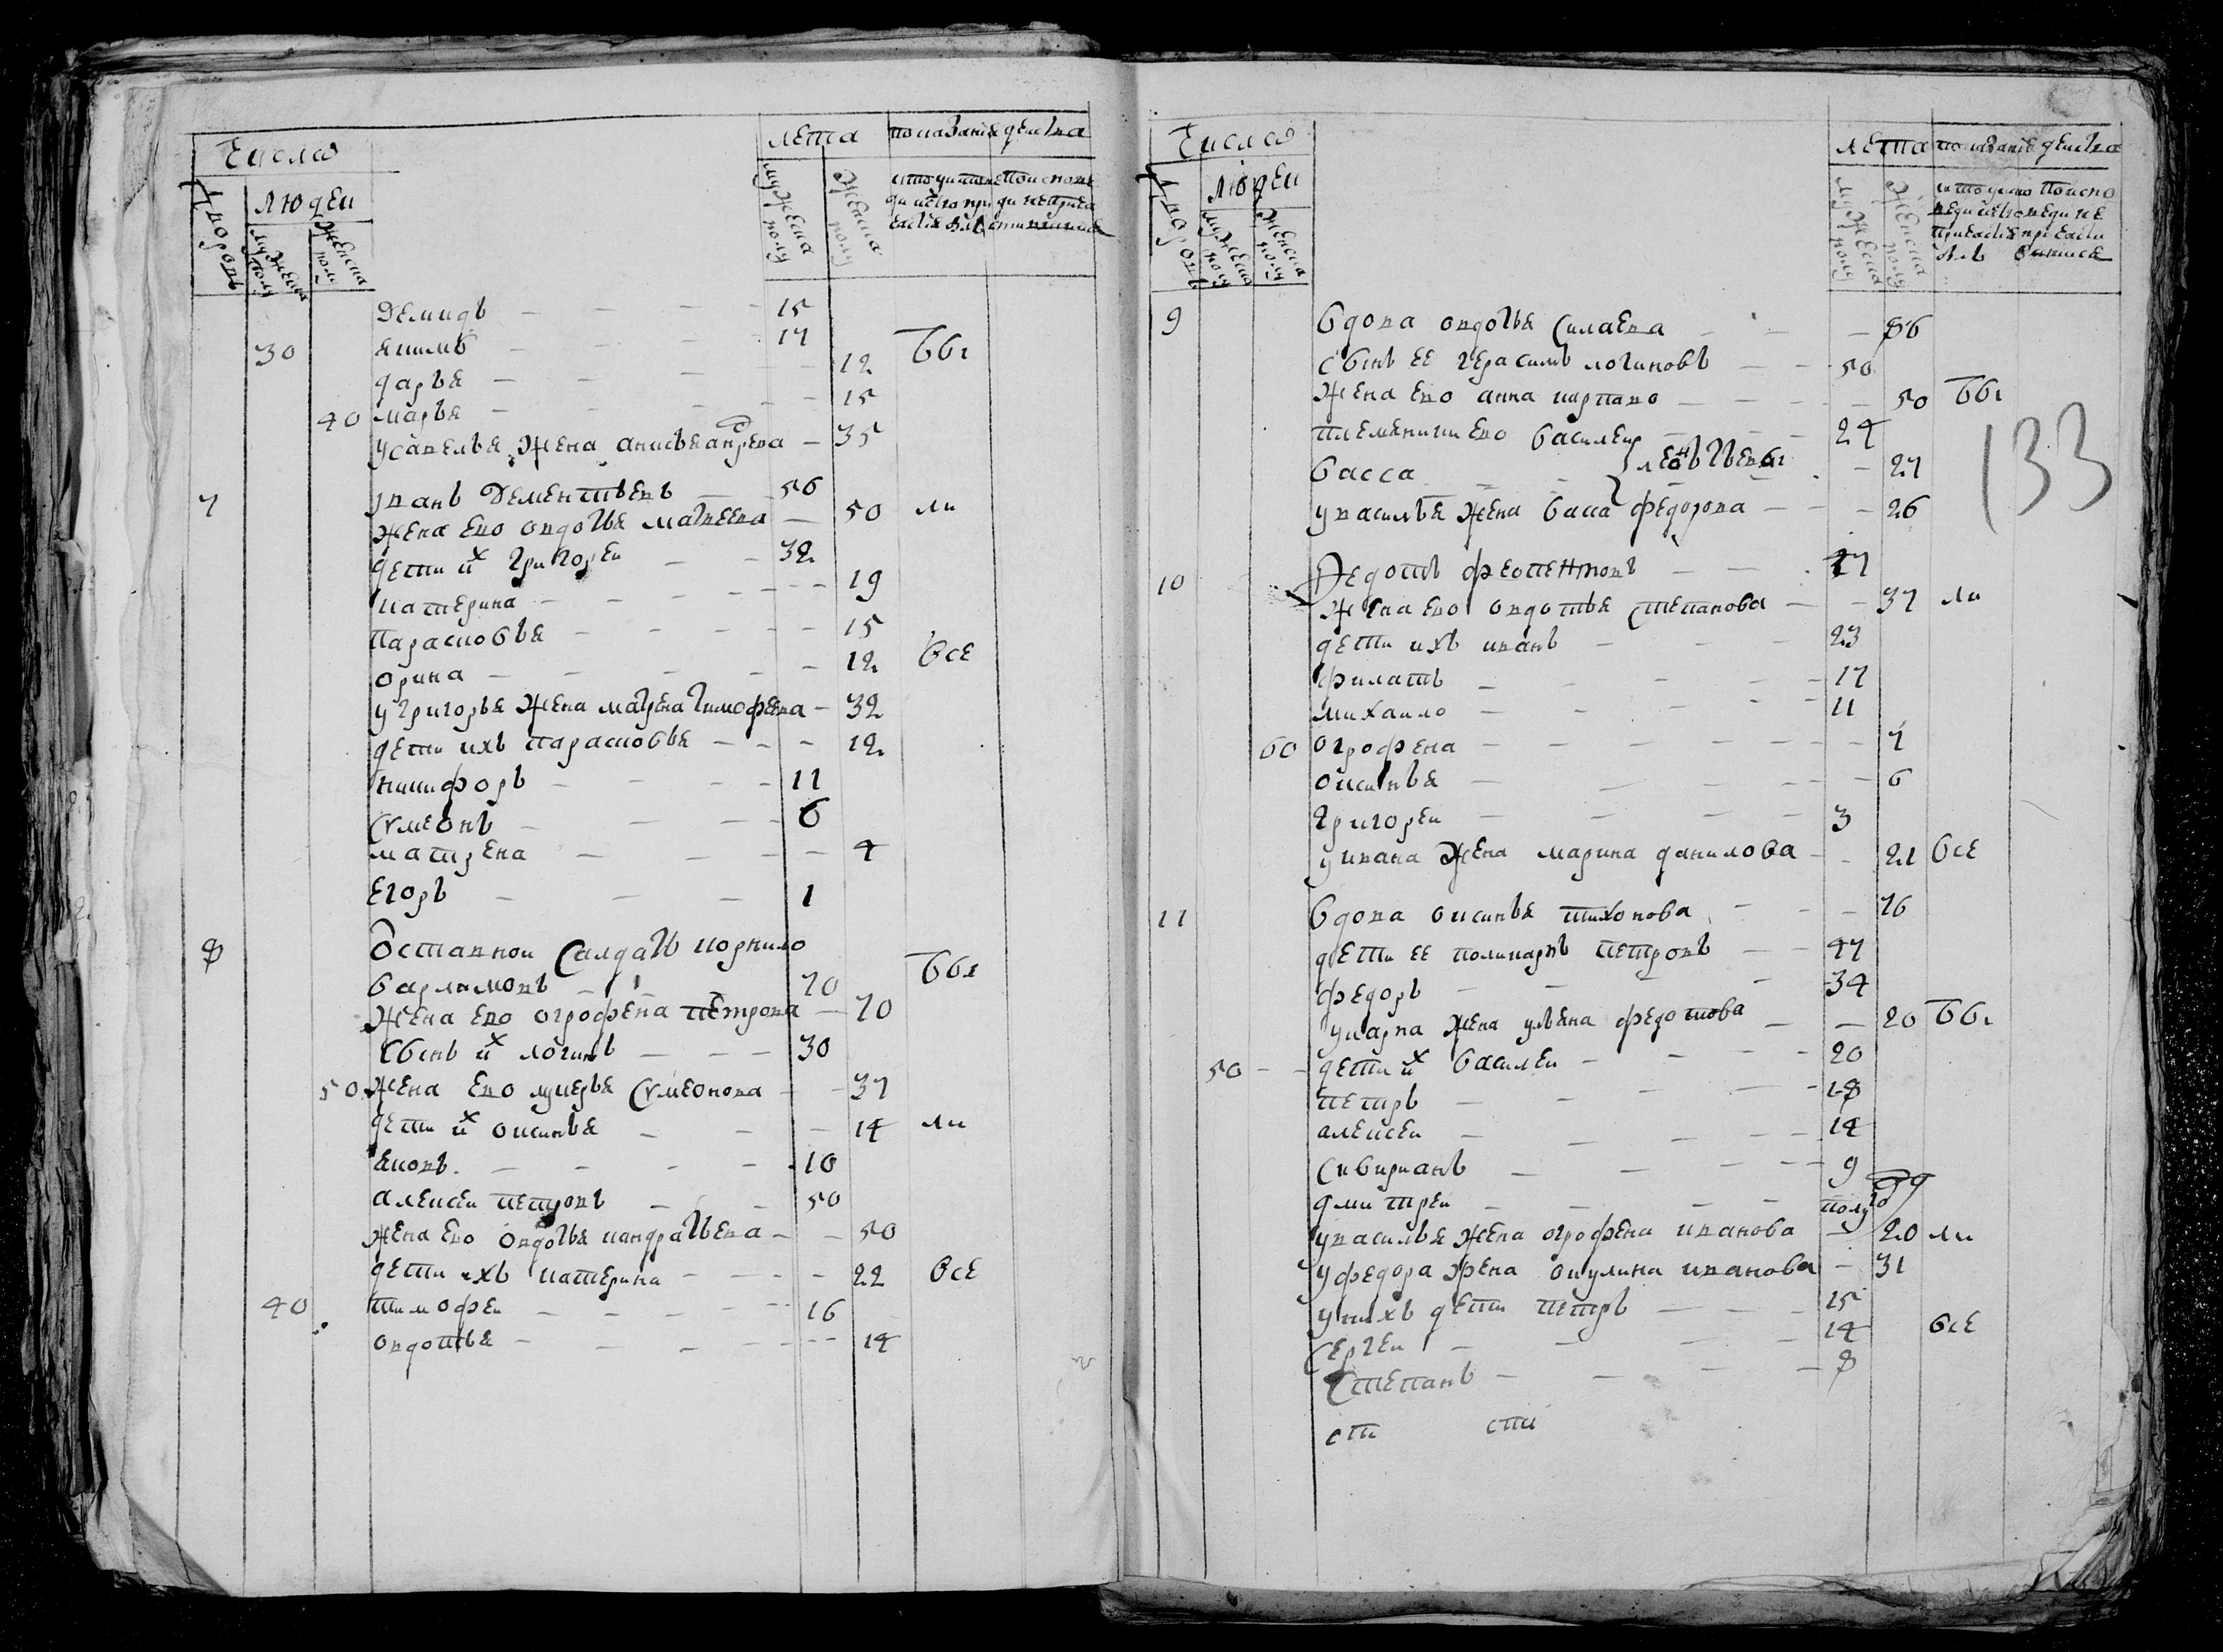 Число
Дворовъ
Людеи
Мужеска полу
Женска полу
лета
мужеска полу
женска полу
показаніе деиства
Демидъ 15
30 екимъ 17
дарья 12 Бы
40 марья 15
у савелья жена анисья андрева 35
7 иванъ Дементьевъ 56
жена ево овдотья матвеева 50 ли
дети их григореи 32
катерина 19
парасковья 15
орина 12 все
у григорья жена матрена тимофеева 32
дети ихъ парасковья 12
никифоръ 11
сумеонъ 6
матрена 4
егоръ 1
8 Оставнои салдатъ корнило
варламовъ 70 Бы
жена ево огрофена петрова 70
сынъ их логинъ 30
50 жена ево лукерья сумеонова 37
дети их оксинья 14 ли
яковъ 10
алексеи петровъ 50
жена ево овдотья кандратьева 50
дети ихъ катерина 22 все
40 тимофеи 16
овдотья 14
Число
Дворовъ
Людеи
мужеска полу
женска полу
лета
мужеска полу
женска полу
показаніе деиства
133
9 вдова овдотья силаева 86
сынъ ее герасимъ логиновъ 50
жена ево анна карпово 50 Бы
племеники ево василеи 24
васса леонтьевы 27
у василья жена васса федорова 26
10 Федотъ феопентовъ 47
жена ево овдотья степанова 37 ли
дети ихъ иванъ 23
филатъ 17
михаило 11
60 огрофена 7
оксинья 6
григореи 3
у ивана жена марина данилова 21 все
11 вдова оксинья тихонова 76
дети ее поликарпъ петровъ 47
федоръ 34
у карпа жена ульяна федотова 20 Бы
50 дети их василеи 20
петръ 18
алексеи 14
сивириянъ 9
дмитреи полу году
у василья жена огрофена иванова 20 ли
у федора жена окулина иванова 31
у нихъ дети петръ 15
сергеи 14 все
степанъ 8
сти сти